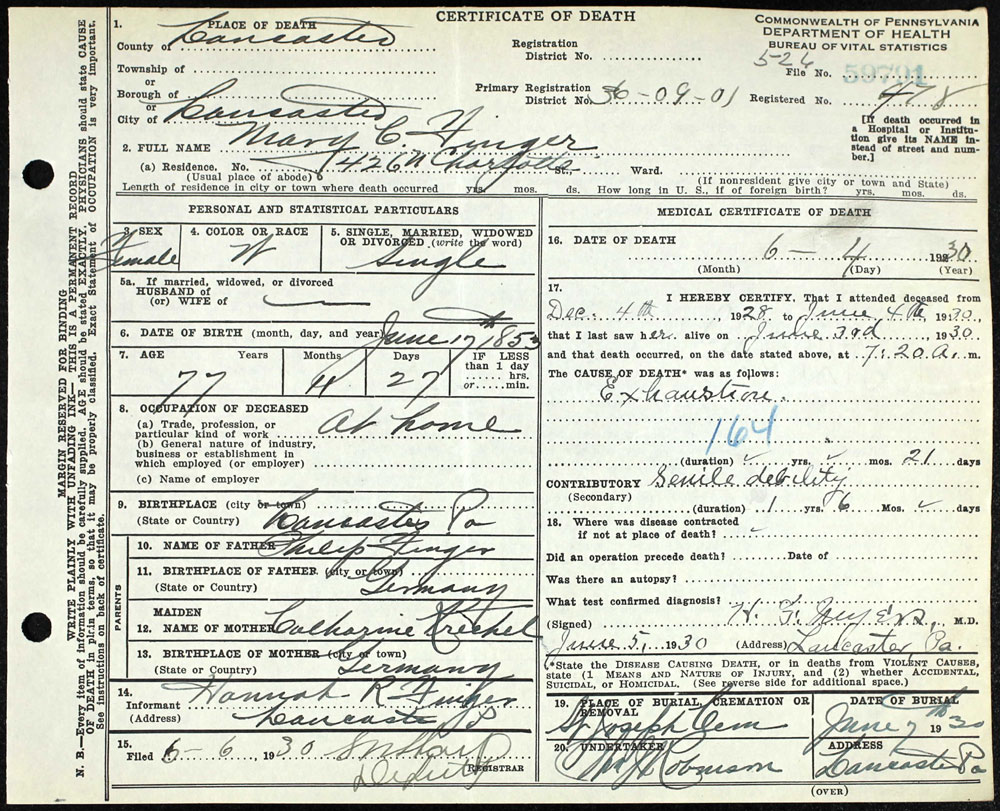 CERTIFICATE OF DEATH
COMMONWEALTH OF PENNSYLVANIA
DEPARTMENT OF HEALTH
BUREAU OF VITAL STATISTICS
1. PLACE OF DEATH
County of Lancaster
Township of
or
Borough of
or
City of Lancaster
Registration District No.
Primary Registration District No. 36-09-01
526
File No. 59791
Registered No. 478
[If death occurred in a Hospital or Institution give its NAME instead of street and number.]
2. FULL NAME Mary C. Finger
(a) Residence. No. 426 N Charlotte St., Ward.
(Usual place of abode) (If nonresident give city or town and State)
Length of residence in city or town where death occurred yrs. mos. ds. How long in U. S., if of foreign birth? yrs. mos. ds.
PERSONAL AND STATISTICAL PARTICULARS
3. SEX Female
4. COLOR OR RACE W
5. SINGLE, MARRIED, WIDOWED OR DIVORCED (write the word) Single
5a. If married, widowed, or divorced
HUSBAND of
(or) WIFE of
6. DATE OF BIRTH (month, day, and year) June 17th 1853
7. AGE Years Months Days IF LESS than 1 day
77 4 27 ...... hrs. or ...... min.
8. OCCUPATION OF DECEASED
(a) Trade, profession, or particular kind of work At home
(b) General nature of industry, business or establishment in which employed (or employer)
(c) Name of employer
9. BIRTHPLACE (city or town) Lancaster Pa
(State or Country)
PARENTS
10. NAME OF FATHER Philip Finger
11. BIRTHPLACE OF FATHER (city or town)
(State or Country) Germany
12. MAIDEN NAME OF MOTHER Catharine Krechel
13. BIRTHPLACE OF MOTHER (city or town)
(State or Country) Germany
14. Informant Hannah R Finger
(Address) Lancaster
15. Filed 6-6 1930
Deputy REGISTRAR
MEDICAL CERTIFICATE OF DEATH
16. DATE OF DEATH 6 - 4 1930
(Month) (Day) (Year)
17. I HEREBY CERTIFY, That I attended deceased from
Dec. 4th, 1928 to June 4th, 1930,
that I last saw her alive on June 3rd, 1930
and that death occurred, on the date stated above, at 7.20 A. m.
The CAUSE OF DEATH* was as follows:
Exhaustion.
164
(duration) yrs. mos. 21 days
CONTRIBUTORY Senile debility
(Secondary)
(duration) 1 yrs. 6 Mos.
18. Where was disease contracted
if not at place of death?
Did an operation precede death? Date of
Was there an autopsy?
What test confirmed diagnosis?
(Signed) H. F. Myers, M.D.
June 5, 1930 (Address) Lancaster, Pa.
(*State the DISEASE CAUSING DEATH, or in deaths from VIOLENT CAUSES, state (1 MEANS AND NATURE OF INJURY, and (2) whether ACCIDENTAL, SUICIDAL, or HOMICIDAL. (See reverse side for additional space.)
19. PLACE OF BURIAL, CREMATION OR REMOVAL St Joseph Cem
DATE OF BURIAL June 7th 1930
20. UNDERTAKER Robinson
ADDRESS Lancaster Pa
(OVER)
MARGIN RESERVED FOR BINDING
WRITE PLAINLY WITH UNFADING INK—THIS IS A PERMANENT RECORD
N. B.—Every item of information should be carefully supplied. AGE should be stated EXACTLY. PHYSICIANS should state CAUSE
OF DEATH in plain terms, so that it may be properly classified. Exact Statement of OCCUPATION is very important.
See instructions on back of certificate.